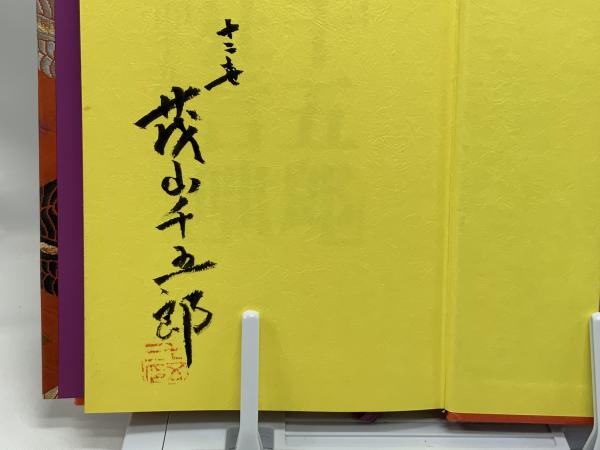 十二世
茂山千五郎